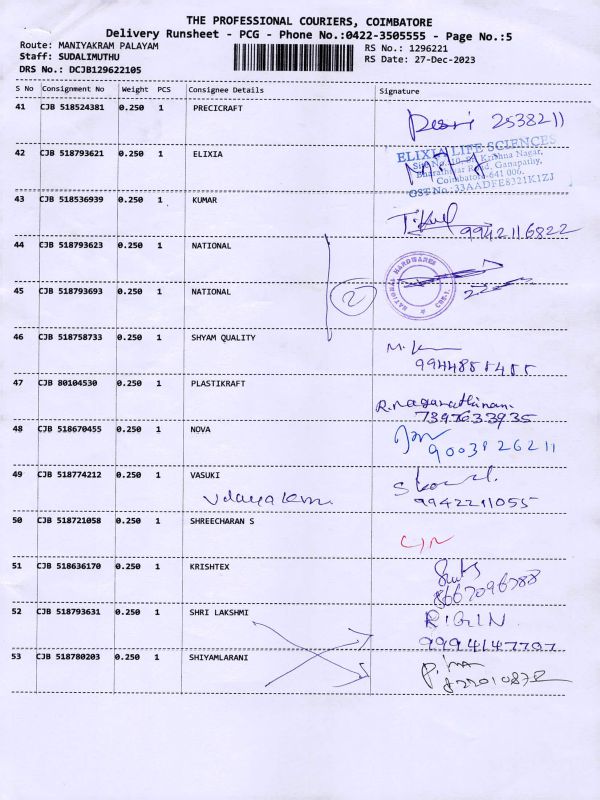 THE PROFESSIONAL COURIERS, COIMBATORE
Delivery Runsheet - PCG - Phone No.:0422-3505555 - Page No.:5
Route: MANIYAKRAM PALAYAM RS No.: 1296221
Staff: SUDALIMUTHU RS Date: 27-Dec-2023
DRS No.: DCJB129622105
S No Consignment No Weight PCS Consignee Details Signature
41 CJB 518524381 0.250 1 PRECICRAFT
2538211
42 CJB 518793621 0.250 1 ELIXIA
ELIXIA LIFE SCIENCES
Krishna Nagar,
Bharathiyar Road, Ganapathy,
Coimbatore-641 006.
GST No.:33AADFE8321K1ZJ
43 CJB 518536939 0.250 1 KUMAR
9942116822
44 CJB 518793623 0.250 1 NATIONAL
NATIONAL HARDWARES
CBE-1.
2
45 CJB 518793693 0.250 1 NATIONAL
46 CJB 518758733 0.250 1 SHYAM QUALITY
47 CJB 80104530 0.250 1 PLASTIKRAFT
48 CJB 518670455 0.250 1 NOVA
9003826211
49 CJB 518774212 0.250 1 VASUKI
9942211055
50 CJB 518721058 0.250 1 SHREECHARAN S
51 CJB 518636170 0.250 1 KRISHTEX
52 CJB 518793631 0.250 1 SHRI LAKSHMI
53 CJB 518780203 0.250 1 SHIYAMLARANI